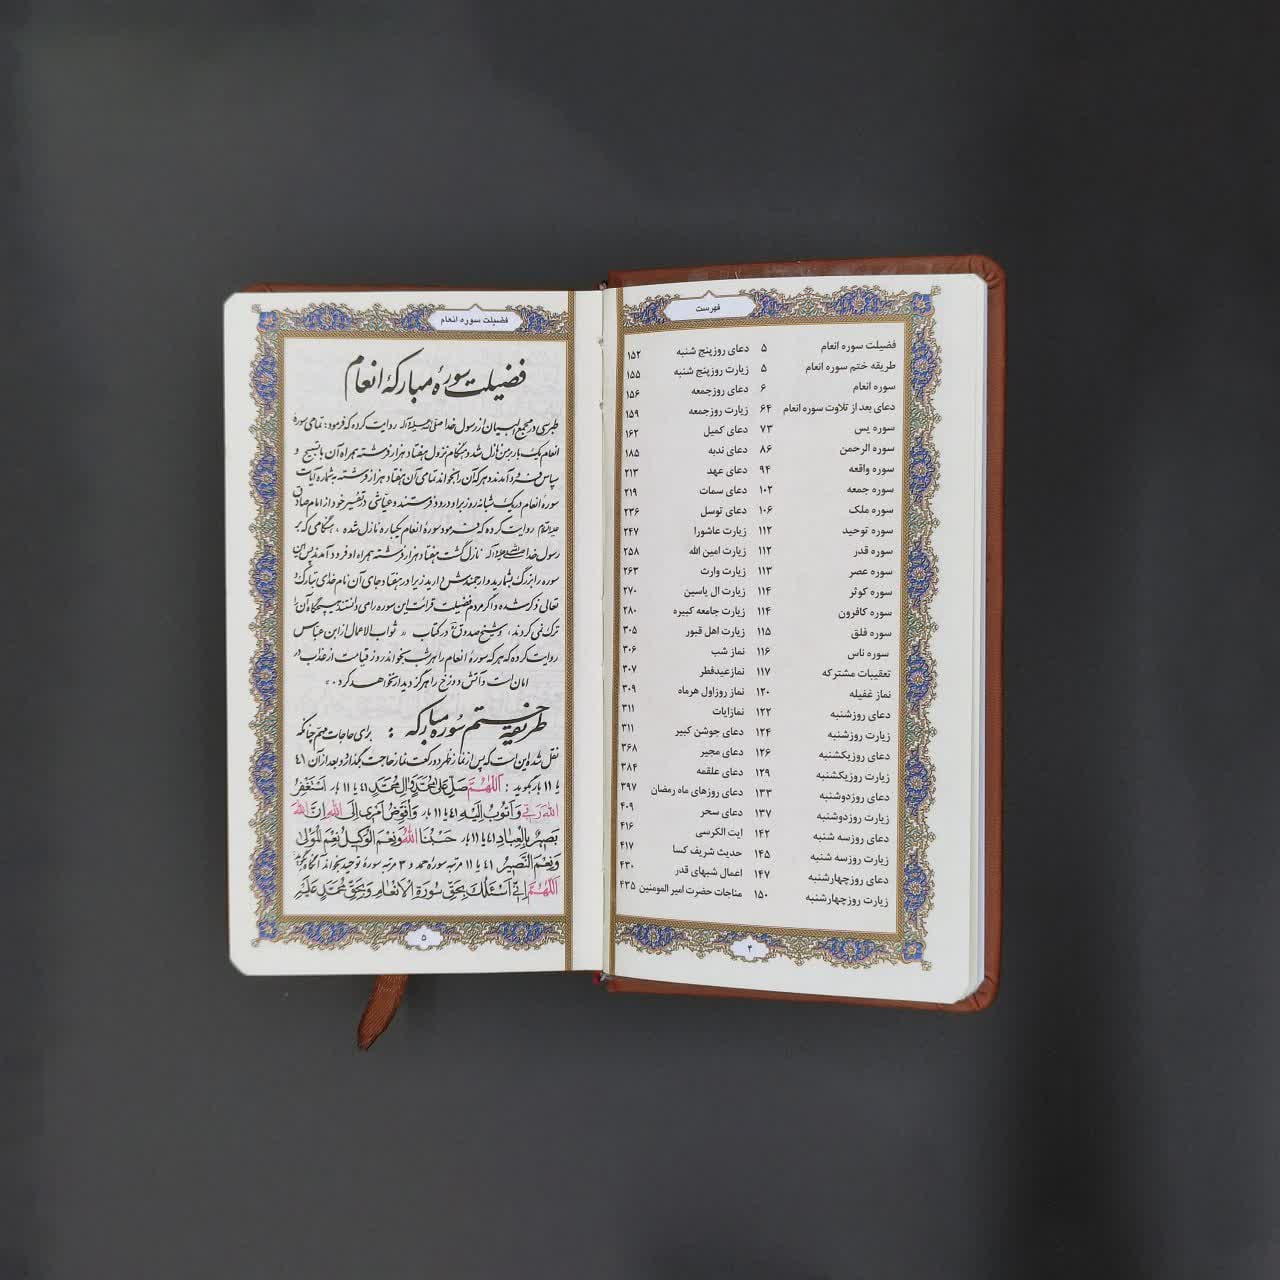 فهرست
فضیلت سوره انعام ۵
طریقه ختم سوره انعام ۵
سوره انعام ۶
دعای بعد از تلاوت سوره انعام ۶۴
سوره یس ۷۳
سوره الرحمن ۸۶
سوره واقعه ۹۴
سوره جمعه ۱۰۲
سوره ملک ۱۰۶
سوره توحید ۱۱۲
سوره قدر ۱۱۲
سوره عصر ۱۱۳
سوره کوثر ۱۱۴
سوره کافرون ۱۱۴
سوره فلق ۱۱۵
سوره ناس ۱۱۶
تعقیبات مشترکه ۱۱۷
نماز غفیله ۱۲۰
دعای روزشنبه ۱۲۲
زیارت روزشنبه ۱۲۴
دعای روزیکشنبه ۱۲۶
زیارت روزیکشنبه ۱۲۹
دعای روزدوشنبه ۱۳۳
زیارت روزدوشنبه ۱۳۷
دعای روزسه شنبه ۱۴۲
زیارت روزسه شنبه ۱۴۵
دعای روزچهارشنبه ۱۴۷
زیارت روزچهارشنبه ۱۵۰
دعای روزپنج شنبه ۱۵۲
زیارت روزپنج شنبه ۱۵۵
دعای روزجمعه ۱۵۶
زیارت روزجمعه ۱۵۹
دعای کمیل ۱۶۲
دعای ندبه ۱۸۵
دعای عهد ۲۱۳
دعای سمات ۲۱۹
دعای توسل ۲۳۶
زیارت عاشورا ۲۴۷
زیارت امین الله ۲۵۸
زیارت وارث ۲۶۳
زیارت ال یاسین ۲۷۰
زیارت جامعه کبیره ۲۸۰
زیارت اهل قبور ۳۰۵
نماز شب ۳۰۶
نماز عیدفطر ۳۰۷
نماز روزاول هرماه ۳۰۹
نمازایات ۳۱۱
دعای جوشن کبیر ۳۱۱
دعای مجیر ۳۶۸
دعای علقمه ۳۸۴
دعای روزهای ماه رمضان ۳۹۷
دعای سحر ۴۰۹
ایت الکرسی ۴۱۶
حدیث شریف کسا ۴۱۷
اعمال شبهای قدر ۴۳۰
مناجات حضرت امیر المومنین ۴۳۵
۴
فضیلت سوره انعام
فضیلت سورهٔ مبارکهٔ انعام
طبرسی در مجمع البیان از رسول خدا صلی الله علیه و آله روایت کرده که فرمود: تمامی سورهٔ
انعام یک بار بر من نازل شد و هنگام نزول هفتاد هزار فرشته همراه آن با تسبیح و
سپاس فرود آمدند هر که آن را بخواند تمامی آن هفتاد هزار فرشته به شماره آیات
سورهٔ انعام در یک شبانه روز بر او درود فرستند و عیاشی در تفسیر خود از امام صادق
علیه السلام روایت کرده که فرمود سورهٔ انعام یکباره نازل شده ، هنگامی که بر
رسول خدا صلی الله علیه و آله نازل گشت هفتاد هزار فرشته همراه او فرود آمدند پس این
سوره را بزرگ بشمارید و ارجمندش دارید زیرا در هفتاد جای آن نام خدای تبارک و
تعالی ذکر شده و اگر مردم فضیلت قرائت این سوره را می دانستند هیچگاه آن را
ترک نمی کردند ، و شیخ صدوق در کتاب ثواب الاعمال از ابن عباس
روایت کرده که هر که سورهٔ انعام را هر شب بخواند روز قیامت از عذاب در
امان است و آتش دوزخ را هرگز دیدار نخواهد کرد .
طریقهٔ ختم سوره مبارکه : برای حاجات مهم چنانکه
نقل شده این است که پس از نماز ظهر دو رکعت نماز حاجت بگذارد و بعد از آن ۴۱
یا ۱۱ بار بگوید : اَللّهُمَّ صَلِّ عَلى مُحَمَّدٍ وَ الِ مُحَمَّدٍ ۴۱ یا ۱۱ بار، اَسْتَغْفِرُ
اللهَ رَبّی وَ اَتُوبُ اِلَیْهِ ۴۱ یا ۱۱ بار، وَ اُفَوِّضُ اَمْری اِلَی اللهِ اِنَّ اللهَ
بَصیرٌ بِالْعِبادِ ۴۱ یا ۱۱ بار، حَسْبُنَا اللهُ وَ نِعْمَ الْوَکیلُ نِعْمَ الْمَوْلى
وَ نِعْمَ النَّصیرُ ۴۱ یا ۱۱ مرتبه سورهٔ حمد و ۳ مرتبه سورهٔ توحید بخواند آنگاه بگوید:
اَللّهُمَّ اِنّی اَسْئَلُکَ بِحَقِّ سُورَةِ الْاَنْعامِ وَ بِحَقِّ مُحَمَّدٍ عَلَیْهِ
۵